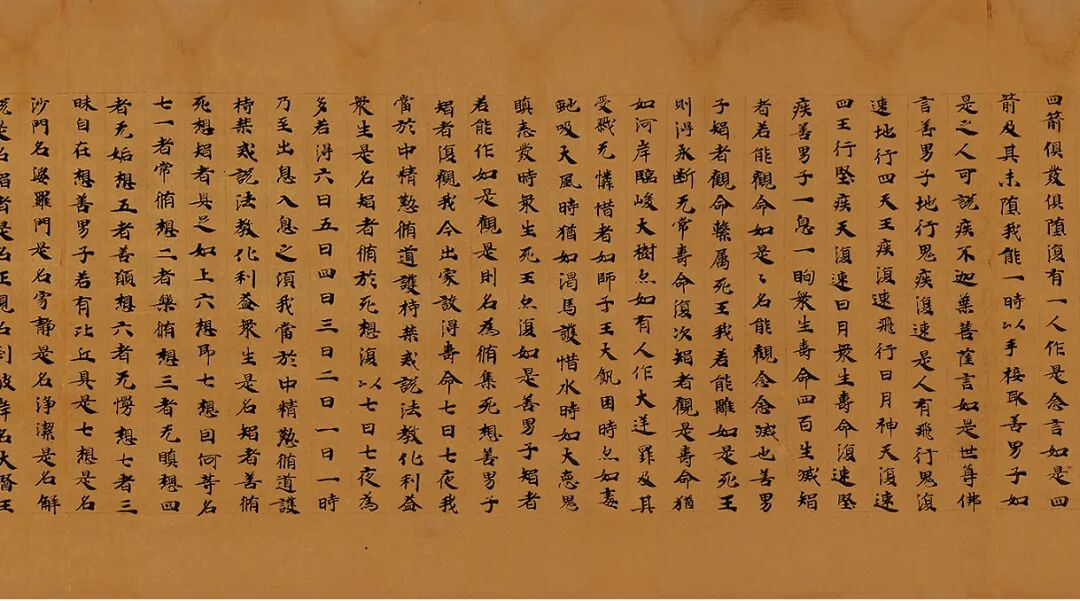 四箭俱發俱墮復有一人作是念言如是四
箭及其未墮我能一時以手接取善男子如
是之人可說疾不迦葉菩薩言如是世尊佛
言善男子地行鬼疾復速是人有飛行鬼復
速地行四天王疾復速飛行日月神天復速
四王行堅疾天復速日月衆生壽命復速堅
疾善男子一息一眴衆生壽命四百生滅智
者若能觀命如是是名能觀念念滅也善男
子智者觀命繫属死王我若能離如是死王
則得永断无常壽命復次智者觀是壽命猶
如河岸臨峻大樹亦如有人作大逆罪及其
受戮无憐惜者如師子王大飢困時亦如毒
虵吸大風時猶如渴馬護惜水時如大惡鬼
瞋恚發時衆生死王亦復如是善男子智者
若能作如是觀是則名為脩集死想善男子
智者復觀我今出家設得壽命七日七夜我
當於中精懃脩道護持禁戒說法教化利益
衆生是名智者脩於死想復以七日七夜為
多若得六日五日四日三日二日一日一時
乃至出息入息之頃我當於中精懃脩道護
持禁戒說法教化利益衆生是名智者善脩
死想智者具足如上六想即七想因何等名
七一者常脩想二者樂脩想三者无瞋想四
者无妬想五者善願想六者无慢想七者三
昧自在想善男子若有比丘具是七想是名
沙門名婆羅門是名寂静是名淨潔是名解
脫是名智者是名正見名到彼岸名大醫王